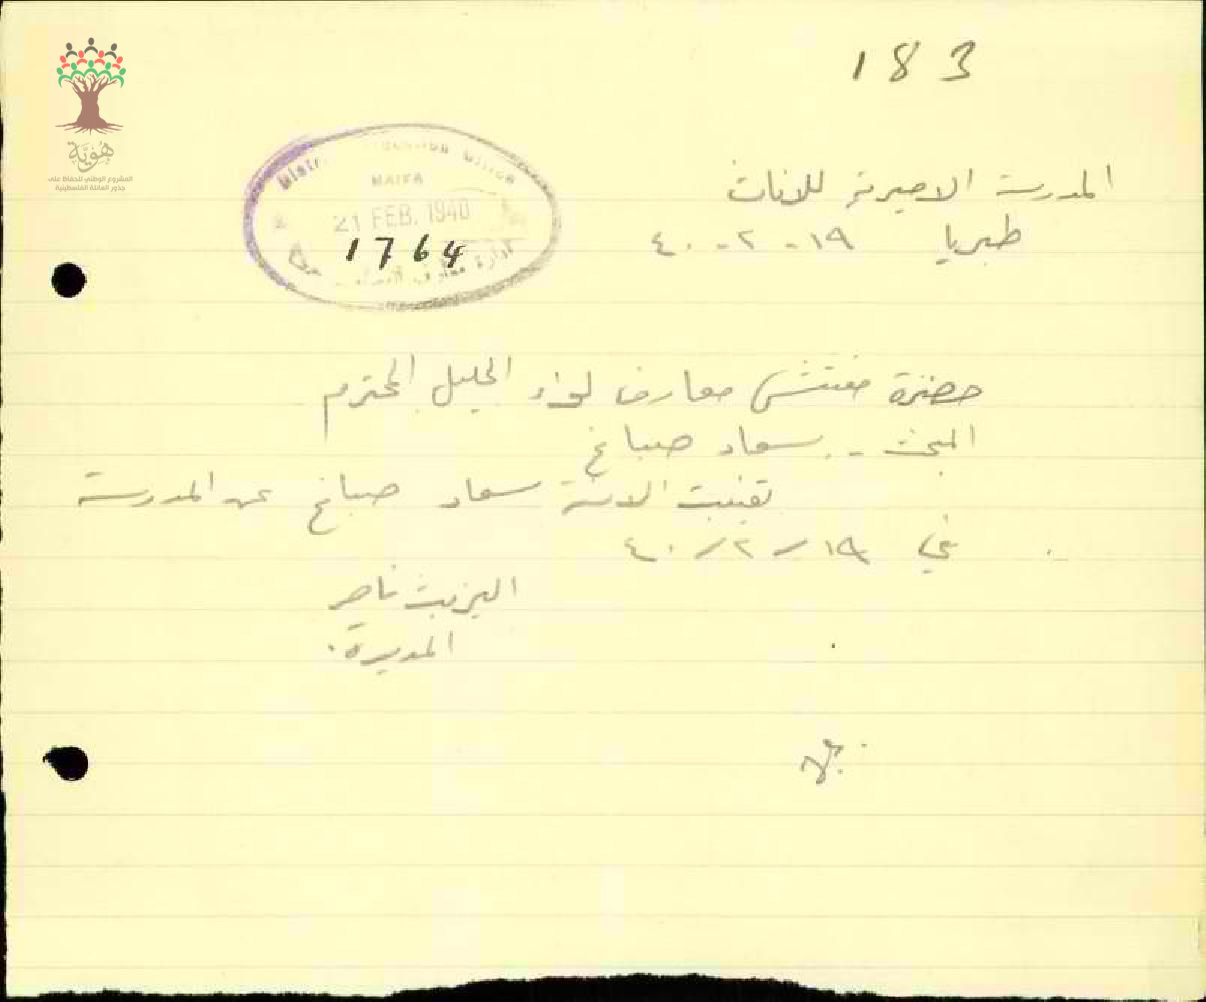 183
هوية
المشروع الوطني للحفاظ على
جذور العائلة الفلسطينية
District Education Office
HAIFA
21 FEB. 1940
1764
ادارة معارف
المدرسة الاميرية للاناث
طبريا ١٩-٢-٤٠
حضرة مفتش معارف لواء الجليل المحترم
المبحث - سعاد صباغ
تغيبت الانسة سعاد صباغ عن المدرسة
في ١٩/٢/٤٠
اليزبث ناصر
المديرة.